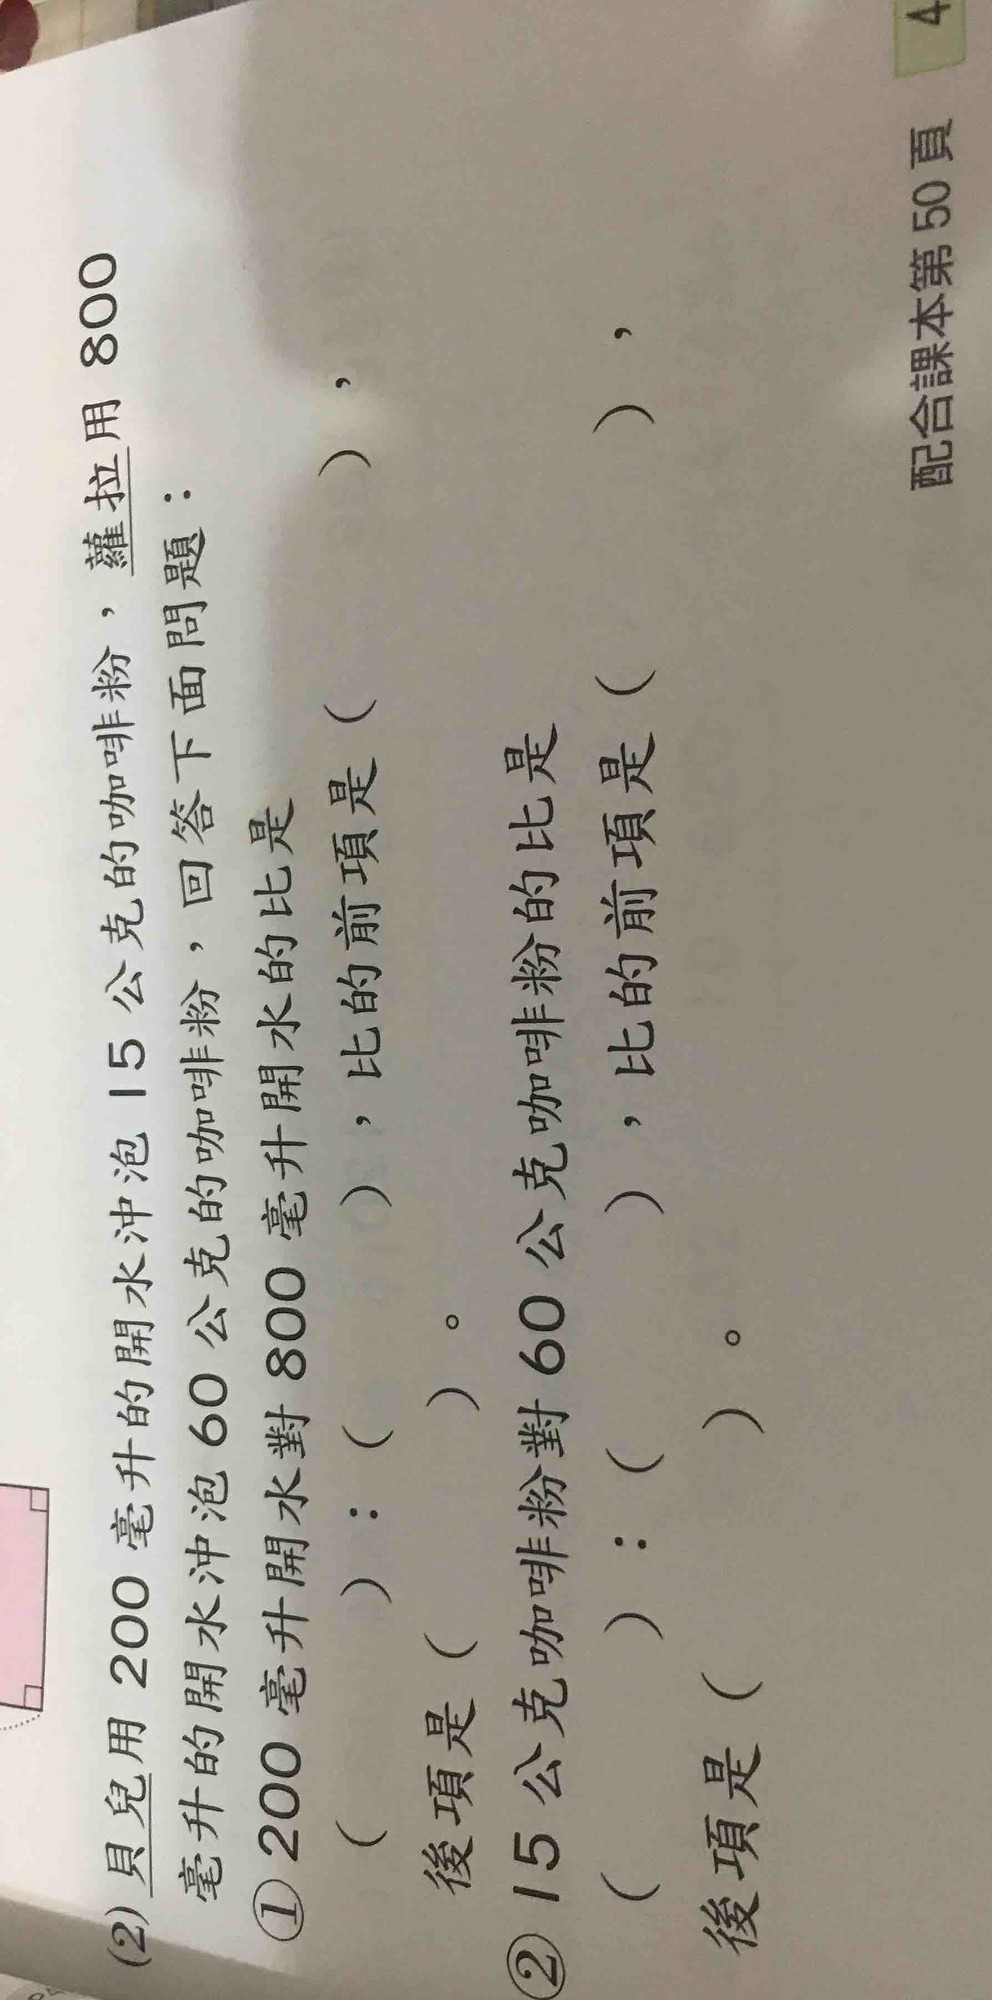 (2) 貝兒用 200 毫升的開水沖泡 15 公克的咖啡粉，蘿拉用 800
毫升的開水沖泡 60 公克的咖啡粉，回答下面問題：
① 200 毫升開水對 800 毫升開水的比是
（　　　）：（　　　），比的前項是（　　　），
後項是（　　　）。
② 15 公克咖啡粉對 60 公克咖啡粉的比是
（　　　）：（　　　），比的前項是（　　　），
後項是（　　　）。
配合課本第 50 頁 4